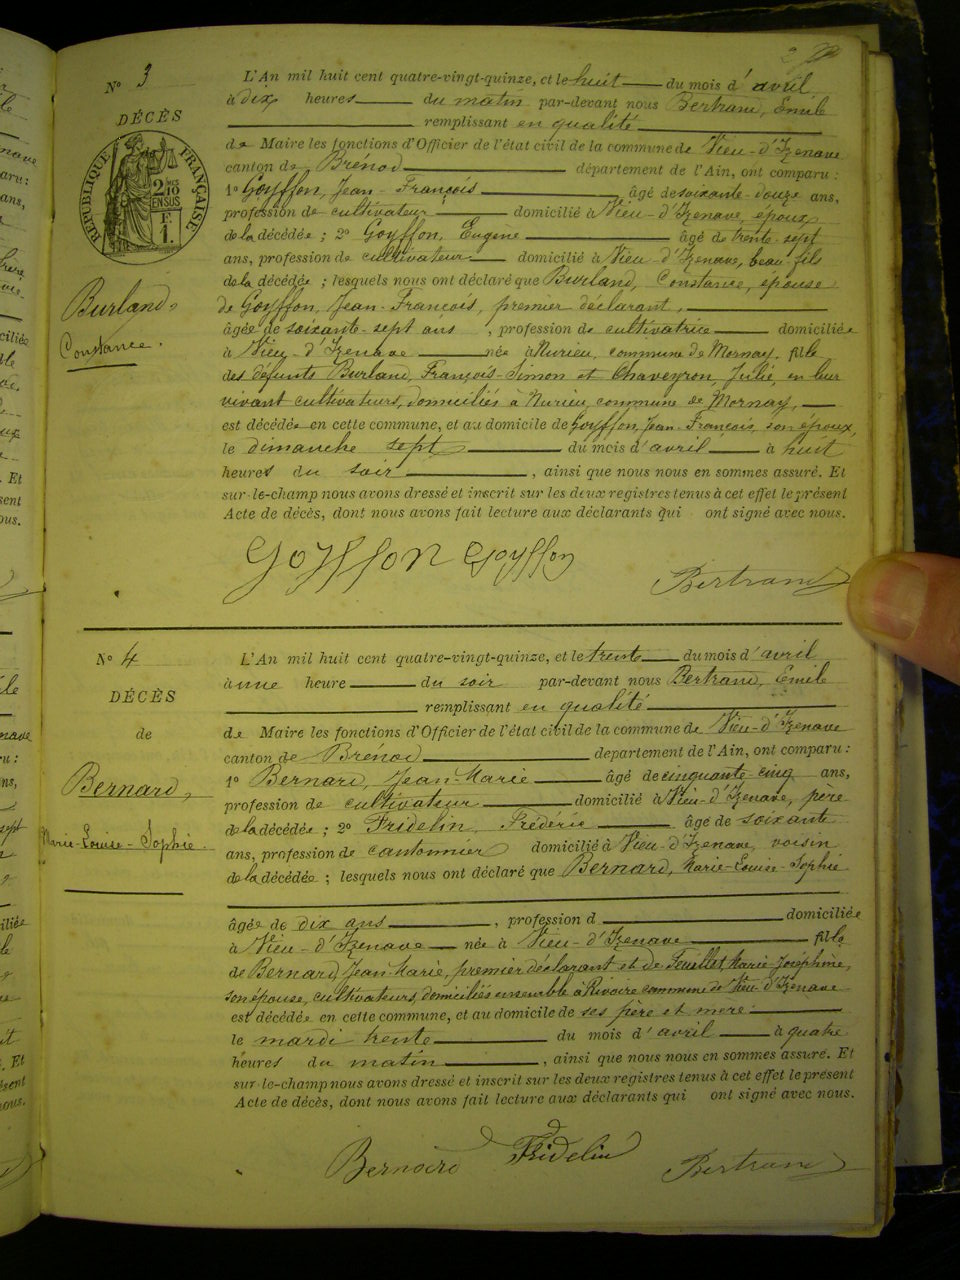 N° 3
DÉCÈS
RÉPUBLIQUE FRANÇAISE
2/10
EN SUS
F.
1.
Burland
Constance.
L'An mil huit cent quatre-vingt-quinze, et le huit du mois d'avril
à dix heures du matin par-devant nous Bertrand, Emile
remplissant en qualité
de Maire les fonctions d'Officier de l'état civil de la commune de Vieu-d'Izenave
canton de Brénod département de l'Ain, ont comparu :
1° Goyffon, Jean-François âgé de soixante-douze ans,
profession de cultivateur domicilié à Vieu-d'Izenave, époux
de la décédée ; 2° Goyffon, Eugène âgé de trente-sept
ans, profession de cultivateur domicilié à Vieu-d'Izenave, beau-fils
de la décédée ; lesquels nous ont déclaré que Burland, Constance, épouse
de Goyffon, Jean-François, premier déclarant,
âgée de soixante-sept ans, profession de cultivatrice domiciliée
à Vieu-d'Izenave née à Nurieu, commune de Mornay, fille
des défunts Burland, François-Simon et Chaveyron, Julie, en leur
vivant cultivateurs, domiciliés à Nurieu, commune de Mornay,
est décédée en cette commune, et au domicile de Goyffon, Jean-François, son époux,
le dimanche sept du mois d'avril à huit
heures du soir, ainsi que nous nous en sommes assuré. Et
sur-le-champ nous avons dressé et inscrit sur les deux registres tenus à cet effet le présent
Acte de décès, dont nous avons fait lecture aux déclarants qui ont signé avec nous.
Goyffon Goyffon
Bertrand
N° 4
DÉCÈS
de
Bernard,
Marie-Louise-Sophie.
L'An mil huit cent quatre-vingt-quinze, et le trente du mois d'avril
à une heure du soir par-devant nous Bertrand, Emile
remplissant en qualité
de Maire les fonctions d'Officier de l'état civil de la commune de Vieu-d'Izenave
canton de Brénod departement de l'Ain, ont comparu :
1° Bernard, Jean-Marie âgé de cinquante-cinq ans,
profession de cultivateur domicilié à Vieu-d'Izenave, père
de la décédée ; 2° Fridelin, Frédéric âgé de soixante
ans, profession de cantonnier domicilié à Vieu-d'Izenave, voisin
de la décédée ; lesquels nous ont déclaré que Bernard, Marie-Louise-Sophie
âgée de dix ans, profession d domiciliée
à Vieu-d'Izenave née à Vieu-d'Izenave fille
de Bernard, Jean-Marie, premier déclarant et de Feuillet, Marie-Joséphine,
son épouse, cultivateurs, domiciliés ensemble à Rivoire commune de Vieu-d'Izenave
est décédée en cette commune, et au domicile de ses père et mère
le mardi trente du mois d'avril à quatre
heures du matin, ainsi que nous nous en sommes assuré. Et
sur-le-champ nous avons dressé et inscrit sur les deux registres tenus à cet effet le présent
Acte de décès, dont nous avons fait lecture aux déclarants qui ont signé avec nous.
Bernard Fridelin
Bertrand